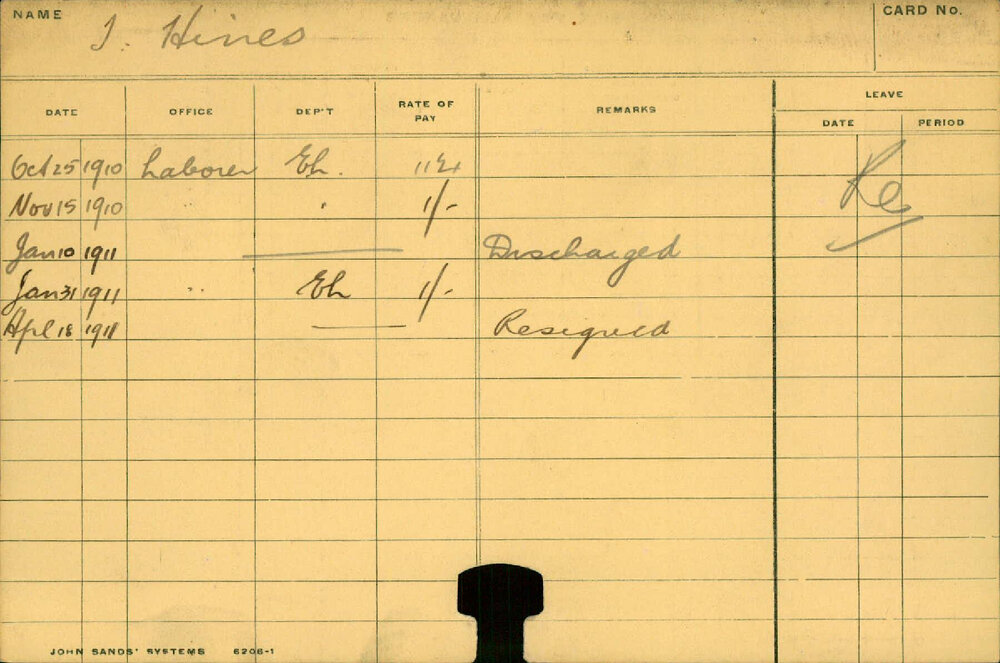 NAME J. Hines CARD No.
DATE OFFICE DEP'T RATE OF PAY REMARKS LEAVE
DATE PERIOD
Oct 25 1910 Laborer Eh.
Nov 15 1910 " 1/-
Jan 10 1911 Discharged
Jan 31 1911 " Eh 1/-
Apl 18 1911 Resigned
Re
JOHN SANDS' SYSTEMS 6206-1